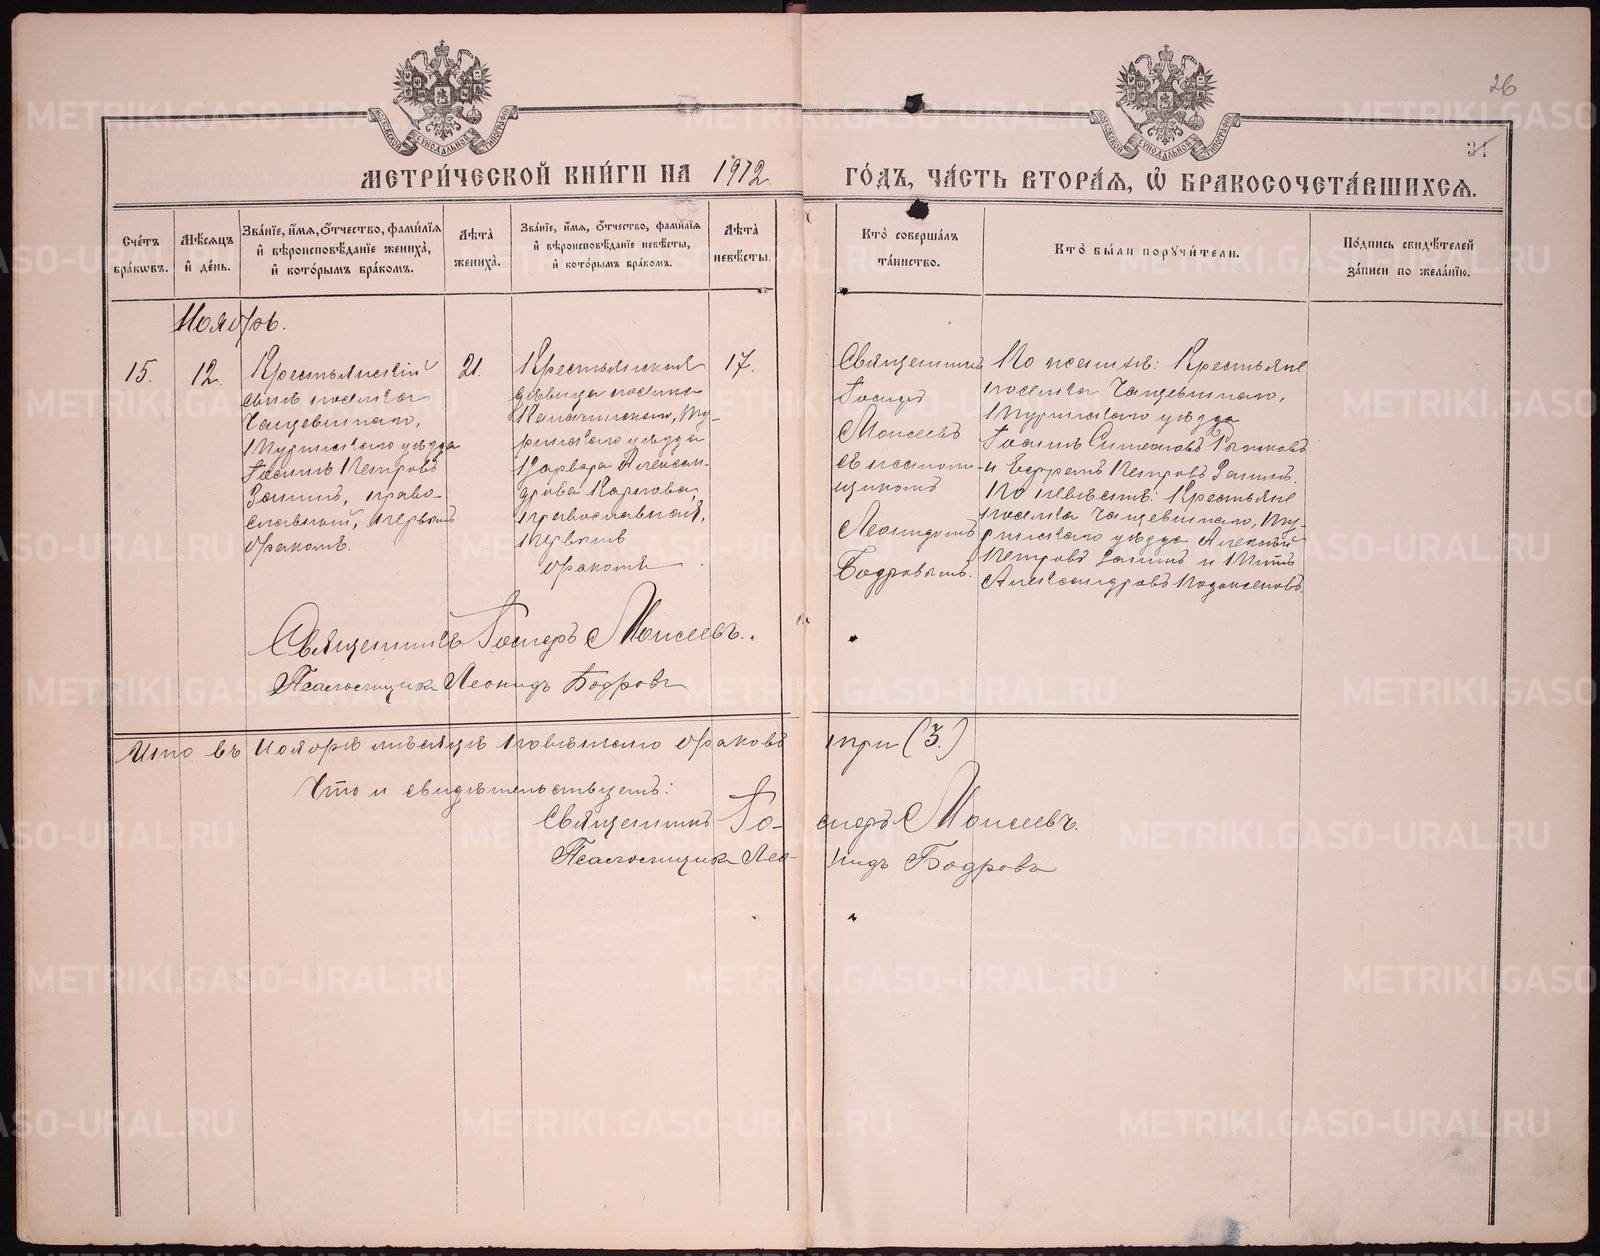 26
31
МЕТРИ́ЧЕСКОЙ КНИ́ГИ НА 1912 ГО́ДЪ, ЧА́СТЬ ВТОРА́Я, Ѡ БРАКОСОЧЕТА́ВШИХСЯ.
Сче́тъ бра́кѡвъ.
Мѣ́сяцъ и҆ де́нь.
Зва́нїе, и҆́мя, о҆́тчество, фами́лїя и҆ вѣроисповѣ́данїе жениха̀, и҆ кото́рымъ бра́комъ.
Лѣ́та жениха̀.
Зва́нїе, и҆́мя, о҆́тчество, фами́лїя и҆ вѣроисповѣ́данїе невѣ́сты, и҆ кото́рымъ бра́комъ.
Лѣ́та невѣ́сты.
Кто̀ соверша́лъ та́инство.
Кто̀ бы́ли порꙋчи́тели.
По́дпись свидѣ́телей за́писи по жела́нїю.
Ноябрь.
15.
12.
Крестьянскій
сынъ поселка
Чащевитаго,
Туринскаго уѣзда
Іоаннъ Петровъ
Заринъ, право-
славный, первымъ
бракомъ.
21.
Крестьянская
дѣвица поселка
Ту-
ринскаго уѣзда
Варвара Алексан-
дрова Карпова,
православная,
первымъ
бракомъ
17.
Священникъ
Іосифъ
Моисеевъ
съ псаломщикомъ
Леонидомъ
Бодровымъ.
По женихѣ: Крестьяне
поселка Чащевитаго,
Туринскаго уѣзда
Іоаннъ Симеоновъ
и Ефремъ Петровъ Заринъ.
По невѣстѣ: Крестьяне
поселка Чащевитаго, Ту-
ринскаго уѣзда Алексѣй
Петровъ Заринъ и Титъ
Александровъ
Священникъ Іосифъ Моисеевъ.
Псаломщикъ Леонидъ Бодровъ
Итого въ Ноябрѣ мѣсяцѣ повѣнчано браковъ три (3.)
Что и свидѣтельствуемъ:
Священникъ Іо-сифъ Моисеевъ.
Псаломщикъ Лео-нидъ Бодровъ
METRIKI.GASO-URAL.RU